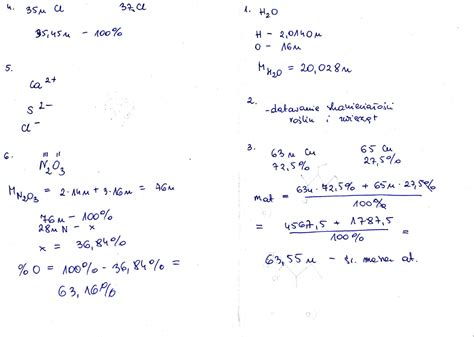 4. 35u Cl 37Cl
35,45u - 100%
5.
Ca2+
S2-
Cl-
6. III II
N2O3
MN2O3 = 2·14u + 3·16u = 76u
76u - 100%
28u N - x
x = 36,84%
% O = 100% - 36,84% =
63,16%
1. H2O
H - 2,0140u
O - 16u
MH2O = 20,028u
2.
- datowanie skamieniałości
roślin i zwierząt
3.
63u Cu 65 Cu
72,5% 27,5%
mat = 63u·72,5% + 65u·27,5%
100%
= 4567,5 + 1787,5 =
100%
63,55u - śr. masa at.